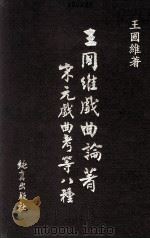 王國維著
王國維戲曲論著
宋元戲曲考等八種
純真出版社